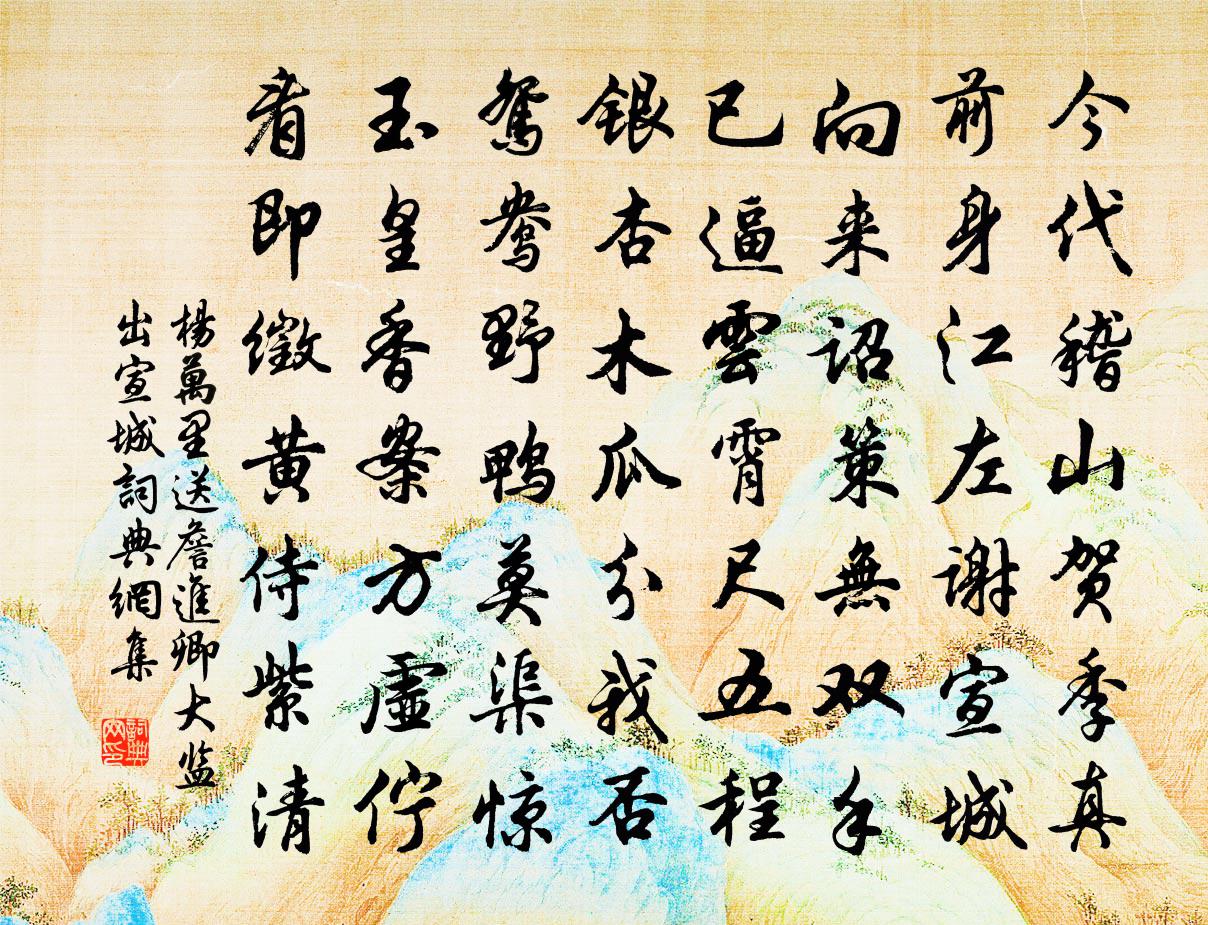 今代稽山贺季真
前身江左謝宣城
向来詔策無双手
已逼雲霄尺五程
銀杏木瓜分我否
鴛鴦野鴨莫渠惊
玉皇香案方虛佇
看即徵黄侍紫清
楊萬里送詹進卿大监
出宣城詞典網集
詞典网印